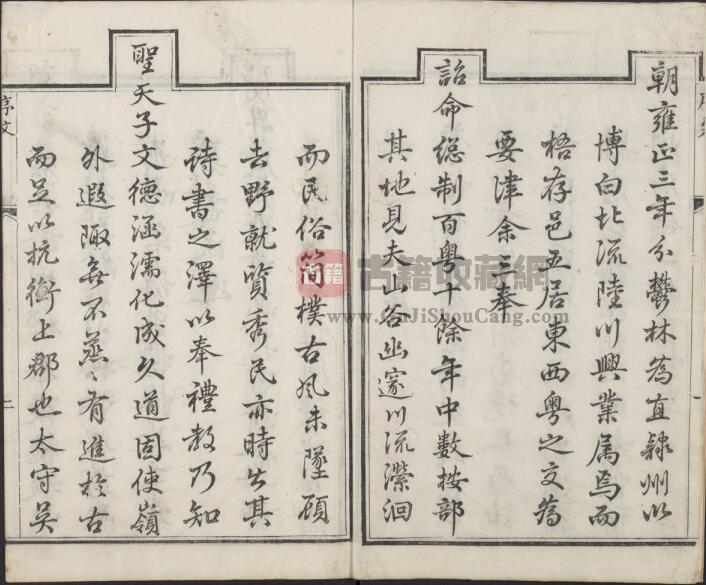 朝雍正三年分鬱林為直隸州以
博白北流陸川興業属焉而
梧存邑五居東西粤之交為
要津余三奉
詔命總制百粤十餘年中數按部
其地見夫山谷幽邃川流瀠洄
而民俗簡樸古風未墜頋
去野就質秀民亦時出其
詩書之澤以奉禮教乃知
聖天子文德涵濡化成久道固使嶺
外遐陬無不蒸〻有進於古
而足以抗衡上郡也太守吴
序文
二
古籍
古籍收藏网
GuJiShouCang.com